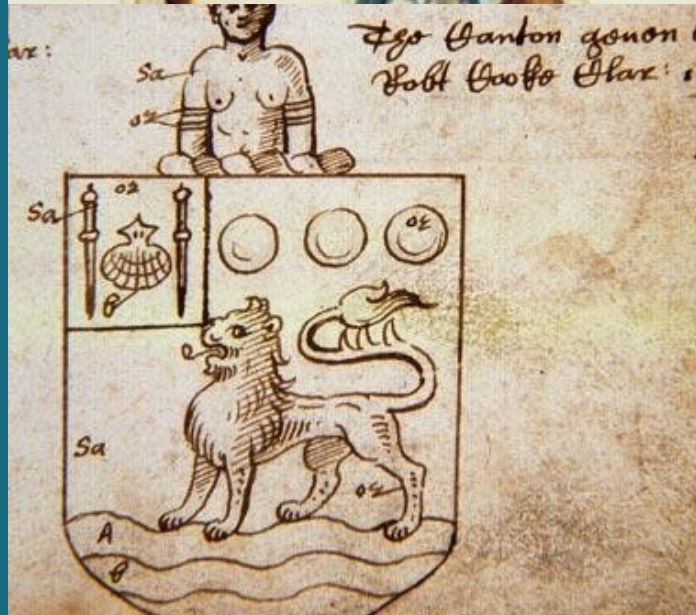 ar:
The Canton geven
Robt Cooke Clar:
Sa
or
or
Sa
or
B
Sa
or
A
B